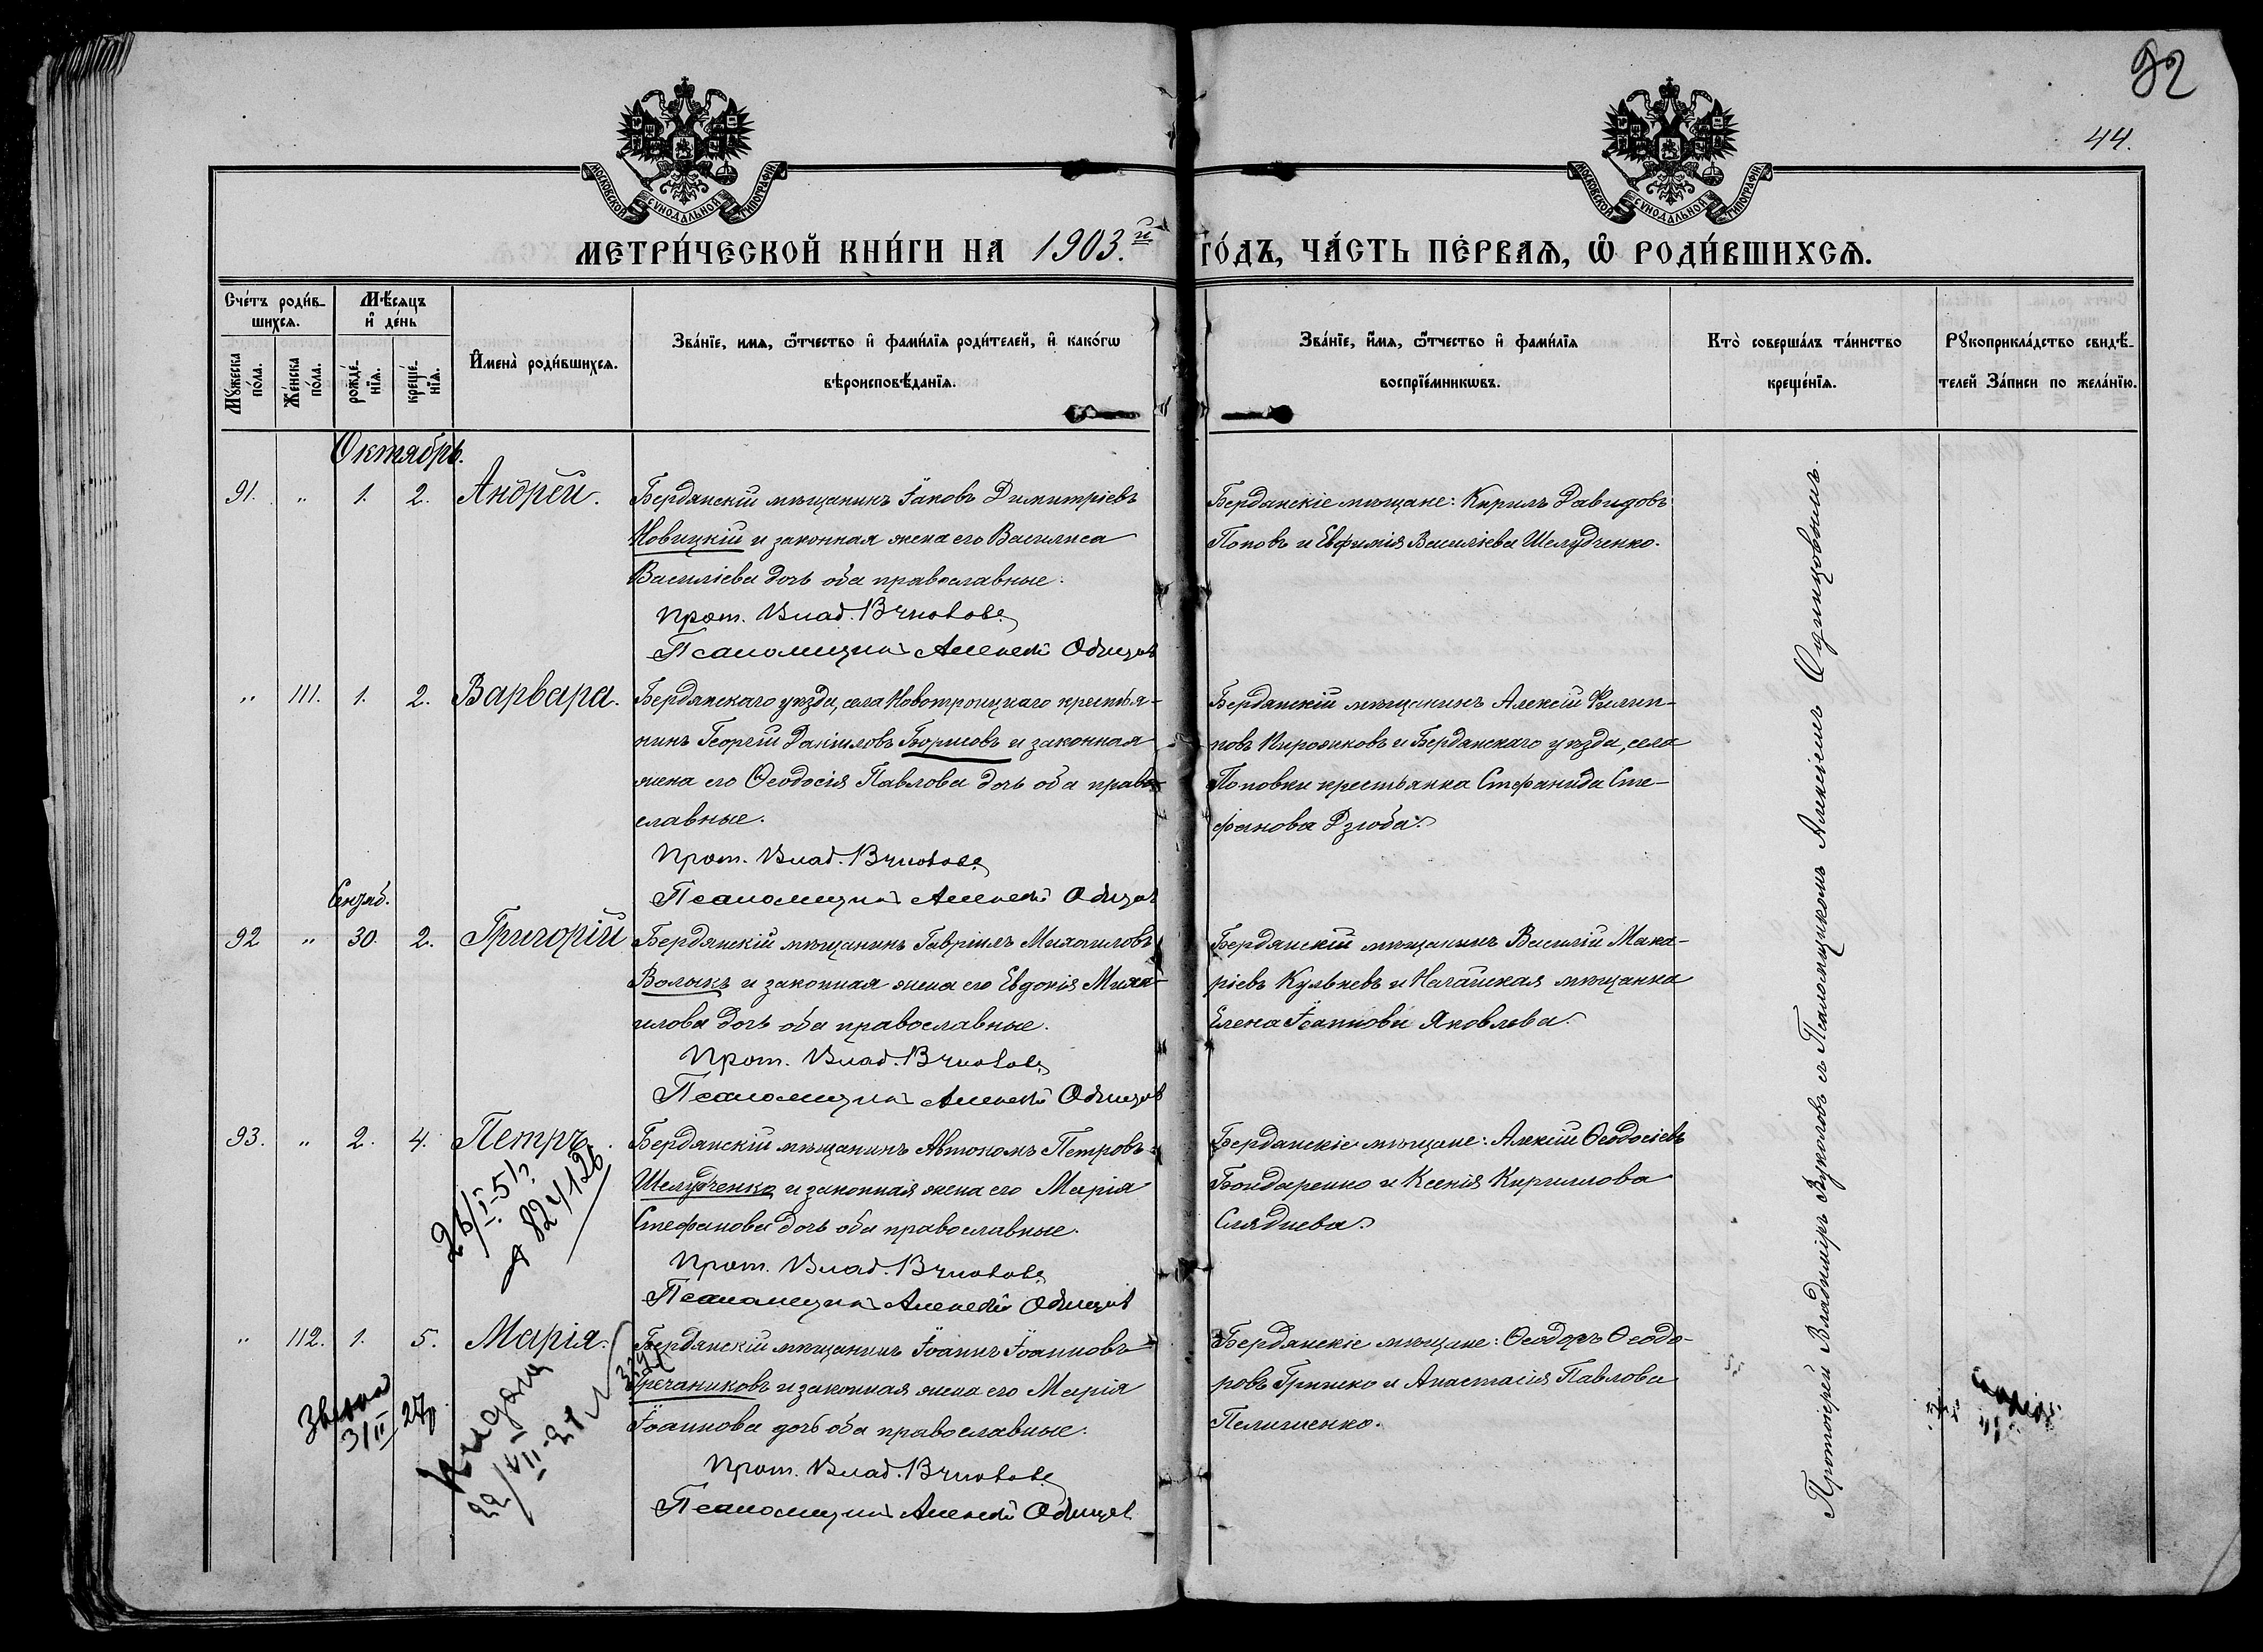 92
44.
МОСКОВСКОЙ СѴНОДАЛЬНОЙ ТИПОГРАФІИ
МОСКОВСКОЙ СѴНОДАЛЬНОЙ ТИПОГРАФІИ
МЕТРИ́ЧЕСКОЙ КНИ́ГИ НА 1903.й ГО́ДЪ, ЧА́СТЬ ПЕ́РВАѦ, Ѡ РОДИ́ВШИХСѦ.
Сче́тъ роди́вшихсѧ.
Мꙋжеска по́ла.
Же́нска по́ла.
Мѣ́сѧцъ и де́нь
рожде́нїѧ.
креще́нїѧ.
Имена̀ роди́вшихсѧ.
Зва́нїе, имѧ, ѻтчество и фами́лїѧ роди́телей, и како́гѡ
вѣроисповѣ́данїѧ.
Зва́нїе, и́мѧ, ѻтчество и фами́лїѧ
воспрїе́мникѡвъ.
Кто̀ соверша́лъ та́инство
креще́нїѧ.
Рꙋкоприкла́дство свидѣ́-
телей За́писи по жела́нїю.
Октябрь.
91. „ 1. 2. Андрей.
Бердянскій мѣщанинъ Іаковъ Димитріевъ
Новицкій и законная жена его Василиса
Василіева дочь оба православные.
Прот. Влад. Вуколовъ
Псаломщикъ Алексей Одинцов
Бердянскіе мѣщане: Кирилъ Давидовъ
Поповъ и Евфимія Василіева Шелудченко.
„ 111. 1. 2. Варвара.
Бердянскаго уѣзда, села Новотроицкаго крестья-
нинъ Георгій Даніиловъ Борисовъ и законная
жена его Ѳеодосія Павлова дочь оба право-
славные.
Прот. Влад. Вуколовъ
Псаломщикъ Алексей Одинцов
Бердянскій мѣщанинъ Алексій Филип-
повъ Пирожковъ и Бердянскаго уѣзда, села
Поповки крестьянка Стефанида Сте-
фанова Дзюба.
Сентяб.
92 „ 30. 2. Григорій
Бердянскій мѣщанинъ Гавріилъ Михаиловъ
Волыкъ и законная жена его Евдокія Миха-
илова дочь оба православные.
Прот. Влад. Вуколовъ
Псаломщикъ Алексей Одинцов
Бердянскій мѣщанинъ Василій Мака-
ріевъ Кульневъ и Ногайская мѣщанка
Елена Іоаннова Яковлева.
93. „ 2. 4. Петръ.
Бердянскій мѣщанинъ Автономъ Петровъ
Шелудченко и законная жена его Марія
Стефанова дочь оба православные.
Прот. Влад. Вуколовъ
Псаломщикъ Алексей Одинцов
Бердянскіе мѣщане: Алексій Ѳеодосіевъ
Бондаренко и Ксенія Кириллова
Сляднева.
„ 112. 1. 5. Марія.
Бердянскій мѣщанинъ Іоаннъ Іоанновъ
Гречаниковъ и законная жена его Марія
Іоаннова дочь оба православные.
Прот. Влад. Вуколовъ
Псаломщикъ Алексей Одинцов
Бердянскіе мѣщане: Ѳеодоръ Ѳеодо-
ровъ Гришко и Анастасія Павлова
3/II 27
22/VII-21
Протоіерей Владиміръ Вуколовъ съ Псаломщикомъ Алексіемъ Одинцовымъ.